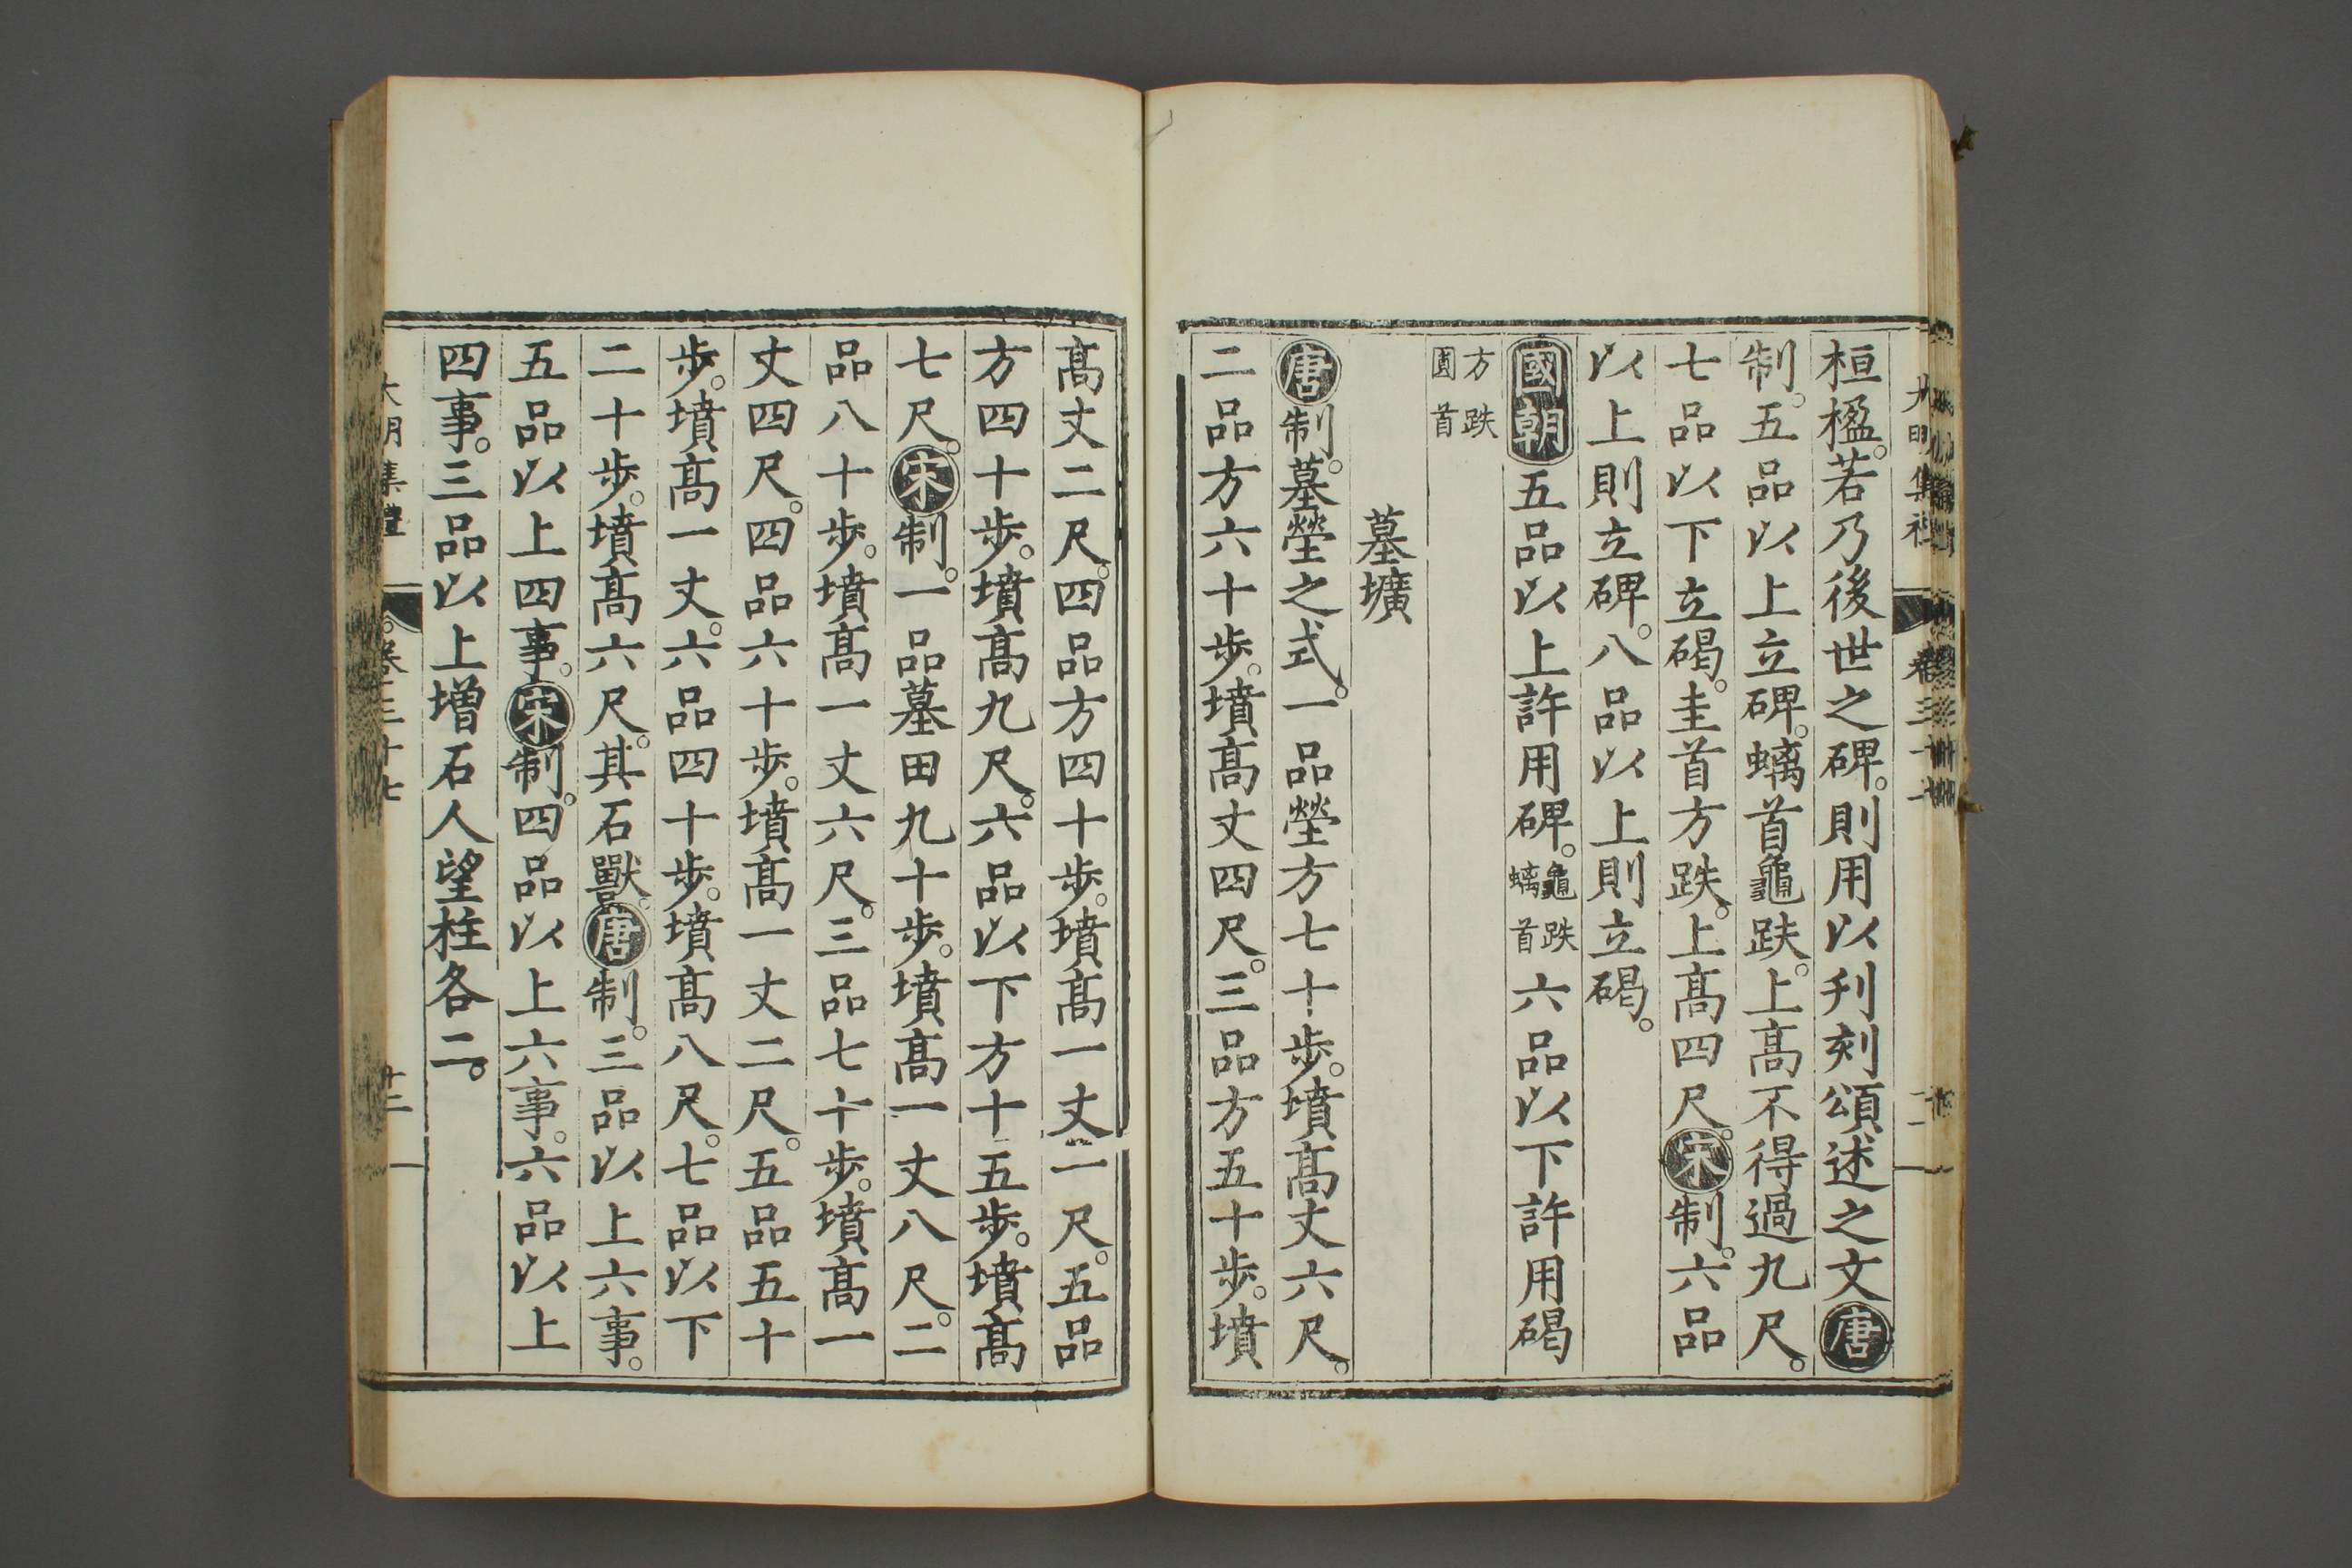 桓楹。若乃後世之碑。則用以刋刻頌述之文唐
制。五品以上立碑。螭首龜趺。上髙不得過九尺。
七品以下立碣。圭首方趺。上髙四尺。宋制。六品
以上則立碑。八品以上則立碣。
國朝五品以上許用碑。龜趺螭首六品以下許用碣
方趺圓首
墓壙
唐制。墓塋之式。一品塋方七十步。墳髙丈六尺。
二品方六十步。墳髙丈四尺。三品方五十步。墳
髙丈二尺。四品方四十步。墳髙一丈一尺。五品
方四十步。墳髙九尺。六品以下方十五步。墳髙
七尺。宋制。一品墓田九十步。墳髙一丈八尺。二
品八十步。墳髙一丈六尺。三品七十步。墳髙一
丈四尺。四品六十步。墳髙一丈二尺。五品五十
步。墳髙一丈。六品四十步。墳髙八尺。七品以下
二十步。墳髙六尺。其石獸。唐制。三品以上六事。
五品以上四事。宋制。四品以上六事。六品以上
四事。三品以上增石人望柱各二。
大明集禮
卷三十七
廿二